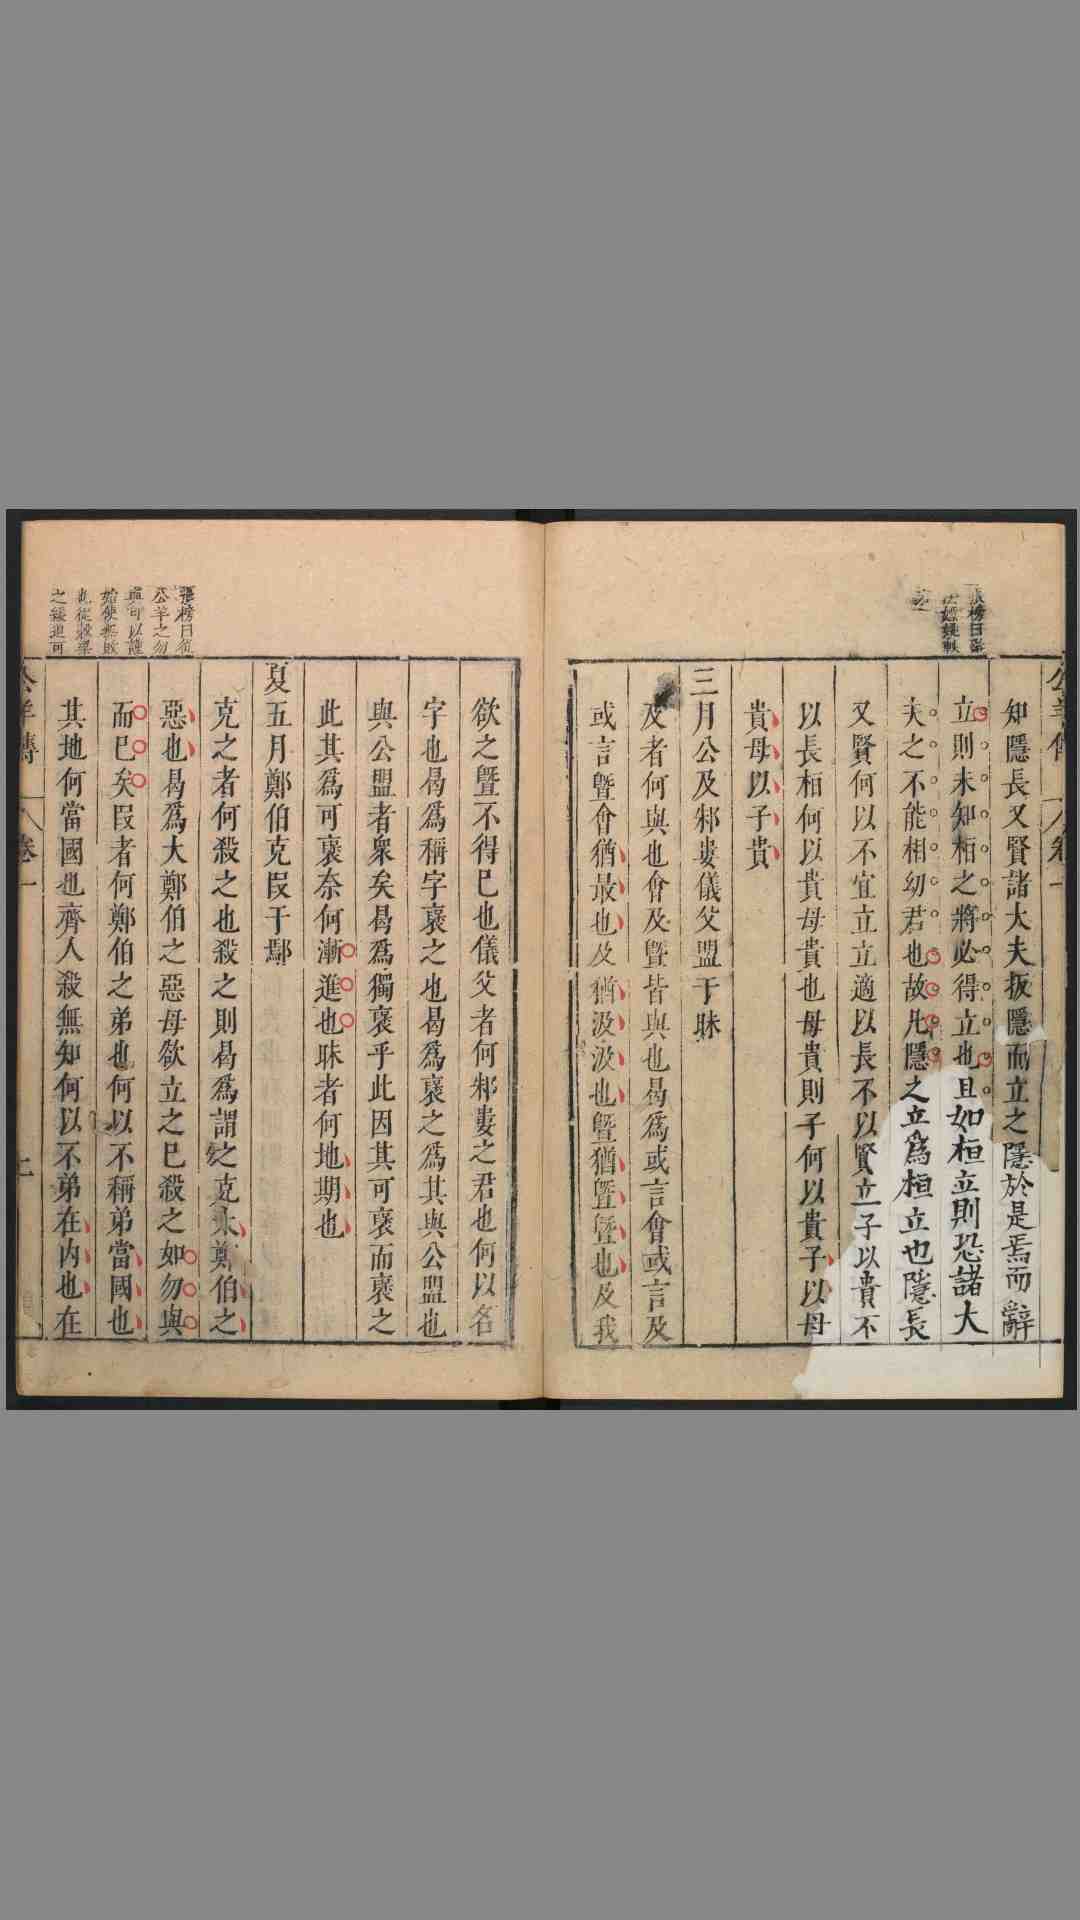 知隱長又賢諸大夫扳隱而立之隱於是焉而辭
立則未知桓之將必得立也且如桓立則恐諸大
夫之不能相幼君也故凡隱之立為桓立也隱長
又賢何以不宜立立適以長不以賢立子以貴不
以長桓何以貴母貴也母貴則子何以貴子以母
貴母以子貴
三月公及邾婁儀父盟于眛
及者何與也會及暨皆與也曷為或言會或言及
或言暨會猶最也及猶汲汲也暨猶暨暨也及我
欲之暨不得已也儀父者何邾婁之君也何以名
字也曷為稱字襃之也曷為襃之為其與公盟也
與公盟者衆矣曷為獨襃乎此因其可襃而襃之
此其為可襃奈何漸進也眛者何地期也
夏五月鄭伯克段于鄢
克之者何殺之也殺之則曷為謂之克大鄭伯之
惡也曷為大鄭伯之惡母欲立之已殺之如勿與
而已矣段者何鄭伯之弟也何以不稱弟當國也
其地何當國也齊人殺無知何以不地在內也在
張榜曰從
公羊之勿
與句以謹
始使無敗
也從穀梁
之緩追可
公羊傳 卷一